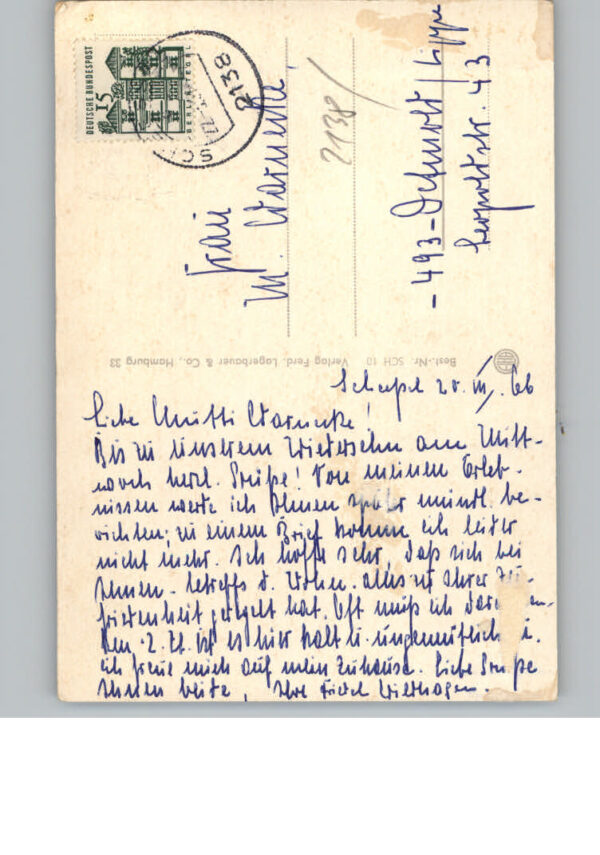 DEUTSCHE BUNDESPOST
15
BERLIN/TEGEL
2138
SC
2138/
Frau
M. Warnecke
-493-Detmold/Lippe
Leopoldstr. 43
Best.-Nr. SCH 10 Verlag Ferd. Lagerbauer & Co., Hamburg 33
Scheeßel 20. III. 66
Liebe Mutti Warnecke!
Bis zu unserem Wiedersehn am Mitt-
woch herzl. Grüße! Von meinen Erleb-
nissen werde ich Ihnen später mündl. be-
richten; zu einem Brief komme ich leider
nicht mehr. Ich hoffe sehr, daß sich bei
Ihnen - betreffs d. Wohn. alles zu Ihrer Zu-
friedenheit geregelt hat. Oft muß ich daran den-
ken. Z. Zt. ist es hier kalt u. ungemütlich u.
ich freue mich auf mein Zuhause. Liebe Grüße
Ihnen beide, Ihre